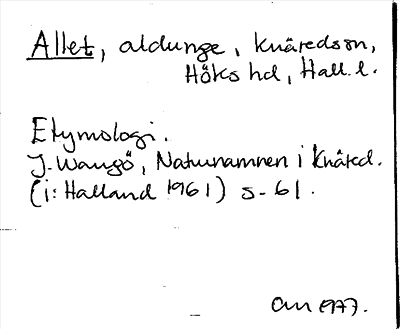 Allet, aldunge, Knäredssn,
Höks hd, Hall. l.
Etymologi.
J. Wangö, Naturnamnen i Knäred.
(i: Halland 1961) s. 61.
1977.